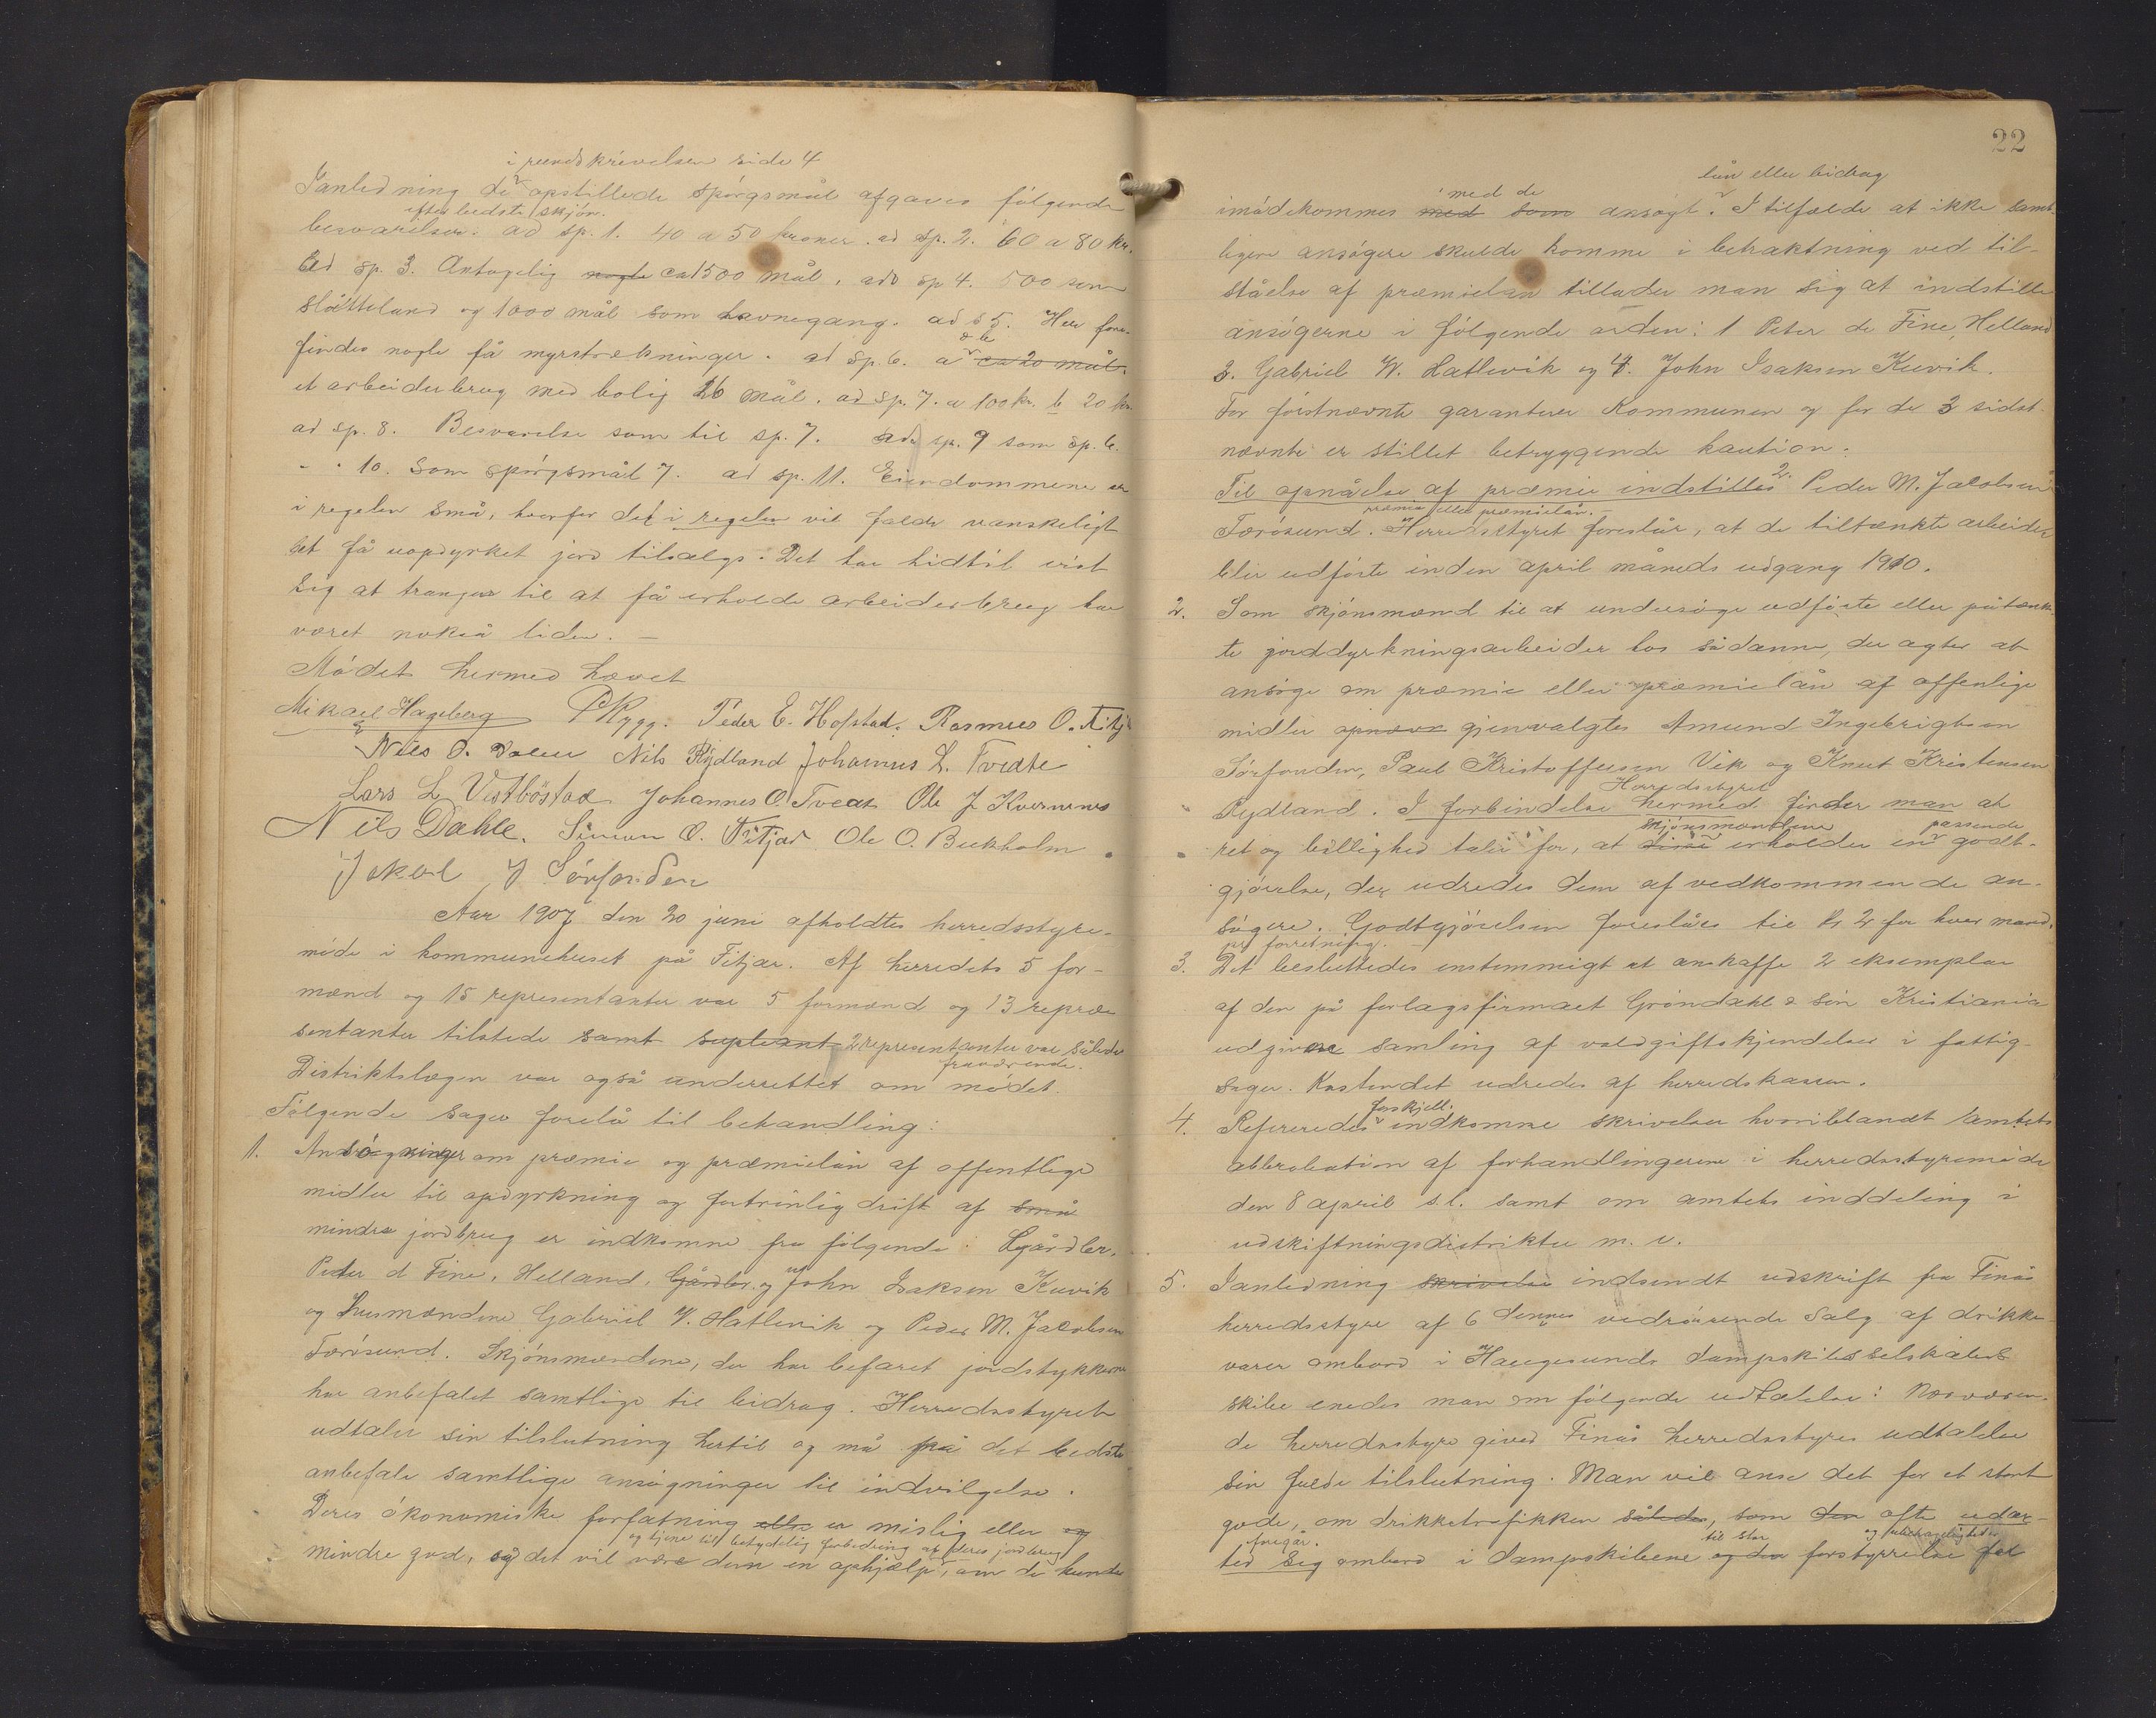 i rundskrivelsen side 4
Ianledning de opstillede spørgsmål afgaves følgende
efter bedste skjøn.
besvarelser. ad sp. 1. 40 a 50 kroner. ad sp. 2. 60 a 80 kr.
Ad sp. 3. Antagelig nogle ca 1500 mål, ad sp 4. 500 som
slåtteland og 1000 mål som havnegang. ad s 5. Her fore-
findes nogle få myrstrækninger. ad sp. 6. a ca 20 mål.
et arbeiderbrug med bolig 26 mål. ad sp. 7. a 100 kr. b 20 kr.
ad sp. 8. Besvarelse som til sp. 7. ad sp. 9 som sp. 6.
- - 10. Som spørgsmål 7. ad sp. 11. Eiendommene er
i regelen små, hvorfor det i regelen vil falde vanskeligt
at få uopdyrket jord tilsalgs. Det har hidtil vist
sig at trangen til at få erholde arbeiderbrug har
været nokså liden. —
Mødet hermed hævet
Mikael Hageberg P Rygg. Peder E. Hofstad. Rasmus O. Fitj
Nils O. Dalen Nils Rydland Johannes L. Tvedte
Lars L Vestbøstad Johannes O. Tveit Ole J Kvernenes
Nils Dahle. Simon O. Fitjar Ole O. Bukholm
Jakob J Sørfonden
Aar 1907 den 20 juni afholdtes herredsstyre-
møde i kommunehuset på Fitjar. Af herredets 5 for-
mænd og 15 representanter var 5 formænd og 13 repræ
sentanter tilstede samt supleant 2 representanter var således
fraværende.
Distriktslægen var også underrettet om mødet.
Følgende sager forelå til behandling:
1. Ansøgninger om præmie og præmielån af offentlige
midler til opdyrkning og fortrinlig drift af små
mindre jordbrug er indkomne fra følgende: Gårdbr.
Peder d Fine, Helland, Gårdbr. og John Isaksen Kuvik
og husmændene Gabriel W. Hatlevik og Peder M. Jacobsen
Færøsund. Skjønsmændene, der har befaret jordstykkerne
har anbefalet samtlige til bidrag. Herredsstyret
udtaler sin tilslutning hertil og må på det bedste
anbefale samtlige ansøgninger til indvilgelse.
Deres økonomiske forfatning eller er mislig eller og
og tjene til betydelig forbedring af deres jordbrug
mindre god, så det vil være dem en ophjælp, om de kunde
22
lån eller bidrag
med de
imødekommes med som ansøgt. I tilfælde at ikke samt-
ligere ansøgere skulde komme i betraktning ved til-
ståelse af præmielån tillader man sig at indstille
ansøgerne i følgende orden: 1 Peter de Fine, Helland
3. Gabriel W. Hatlevik og 4. John Isaksen Kuvik.
For førstnævnte garanterer kommunen og for de 3 sidst-
nævnte er stillet betryggende kaution.
Til opnåelse af præmie indstilles 2. Peder M. Jacobsen
præmie eller præmielån. -
Færøsund. Herredsstyret foreslår, at de tiltænkte arbeider
blir udførte inden april måneds udgang 1910.
2. Som skjønsmænd til at undersøge udførte eller påtænk
te jorddyrkningsarbeider hos sådanne, der agter at
ansøge om præmie eller præmielån af offenlige
midler opnævn gjenvalgtes Amund Ingebrigtsen
Sørfonden, Paul Kristoffersen Vik og Knut Kristensen
Herredsstyret
Rydland. I forbindelse hermed finder man at
skjønsmændene passende
ret og billighed taler for, at disse erholder en godt-
gjørelse, der udredes dem af vedkommende an-
søgere. Godtgjørelsen foreslåes til kr 2 for hver mand.
pr forretning.
3. Det besluttedes enstemmigt at anskaffe 2 eksemplar
af den på forlagsfirmaet Grøndahl & søn Kristiania
udgivne samling af voldgiftskjendelser i fattig-
sager. Kostendet udredes af herredskassen.
forskjell.
4. Refereredes indkomne skrivelser hvoriblandt amtets
abbrobation af forhandlingerne i herredsstyremøde
den 8 april s. l. samt om amtets inddeling i
udskiftningsdistrikter m. v.
5. Ianledning skrivelse indsendt udskrift fra Finås
herredsstyre af 6 dennes vedrørende salg af drikke
varer ombord i Haugesunds dampskibsselskabs
skibe enedes man om følgende udtalelse: Nærværen-
de herredsstyre giver Finås herredsstyres udtalelse
sin fulde tilslutning. Man vil anse det for et stort
gode, om drikketrafikken således, som den ofte udar-
foregår. til stor og ubehageligheder
ted sig ombord i dampskibene og den forstyrrelse for